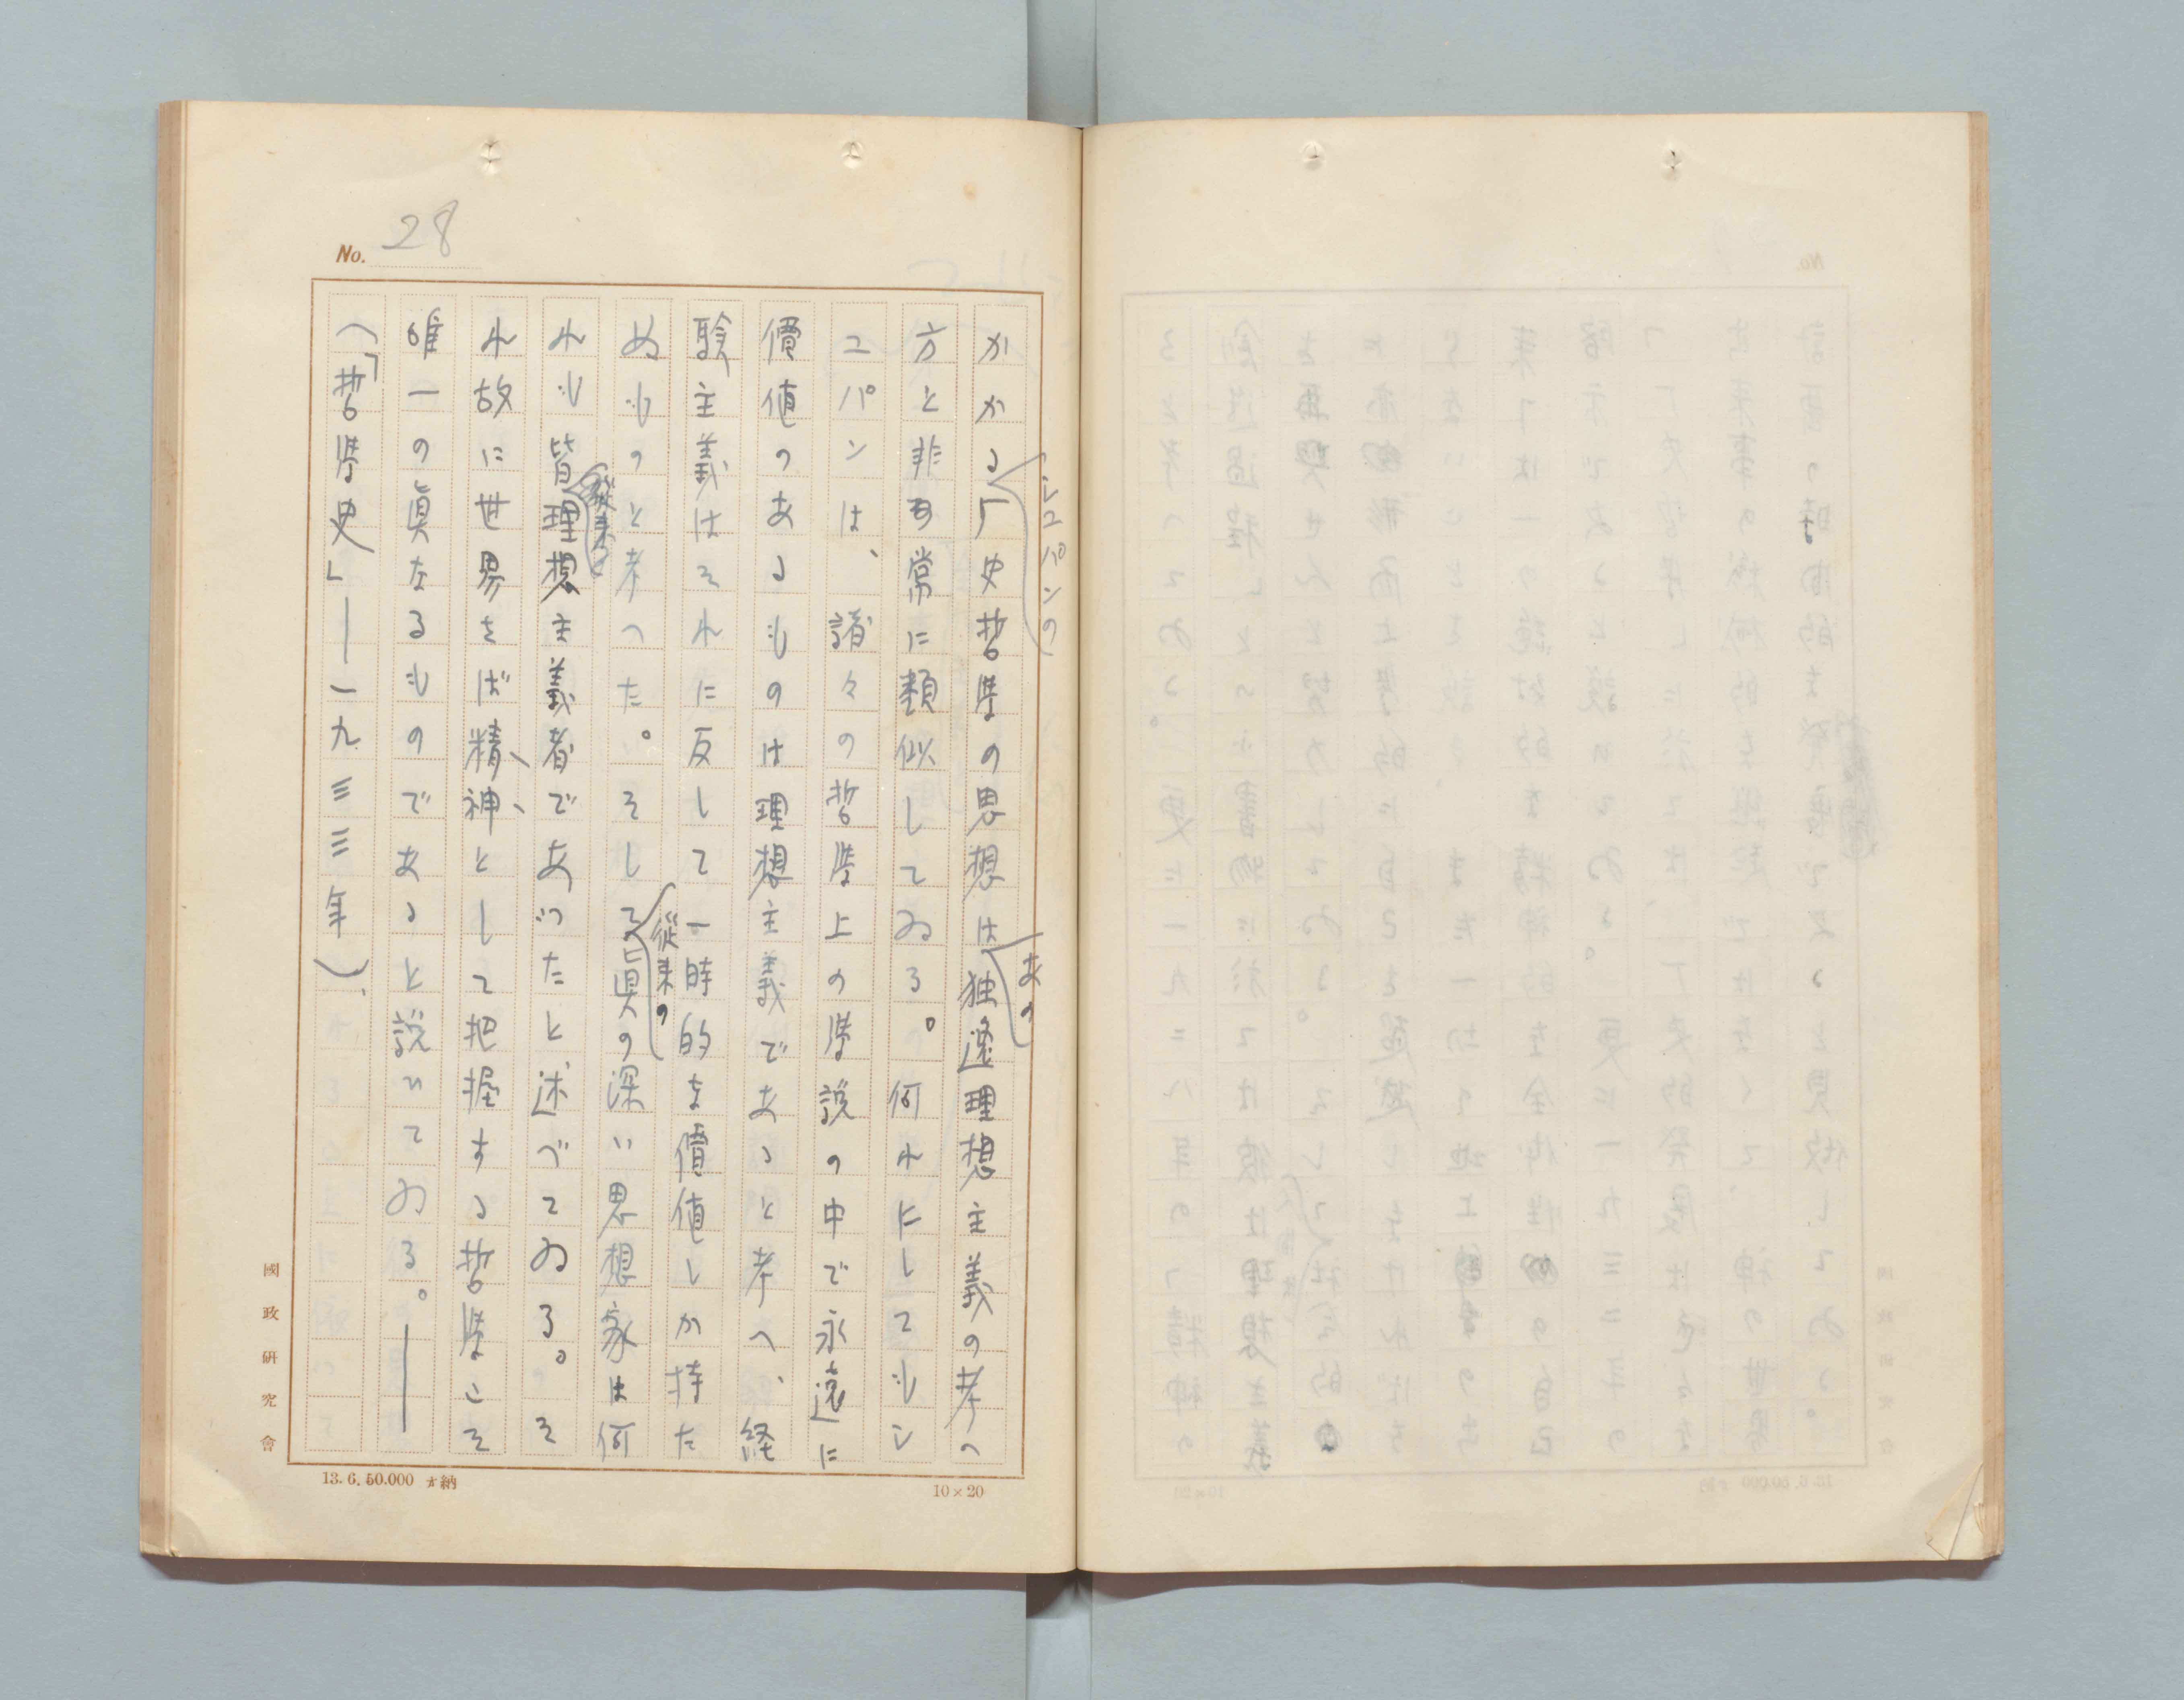 No. 28
シュパンの
かかる厂史哲学の思想は独逸理想主義の考へ
あの
方と非常に類似してゐる。何れにしてもシ
ュパンは、諸々の哲学上の学説の中で永遠に
價値のあるものは理想主義であると考へ、経
験主義はそれに反して一時的な價値しか持た
従来の
ぬものと考へた。そして眞の深い思想家は何
従来
れも皆理想主義者であつたと述べてゐる。そ
れ故に世界をば精神として把握する哲学こそ
唯一の眞なるものであると説いてゐる。——
（「哲学史」——一九三三年）、
國政研究會
13. 6. 50.000 才納
10×20